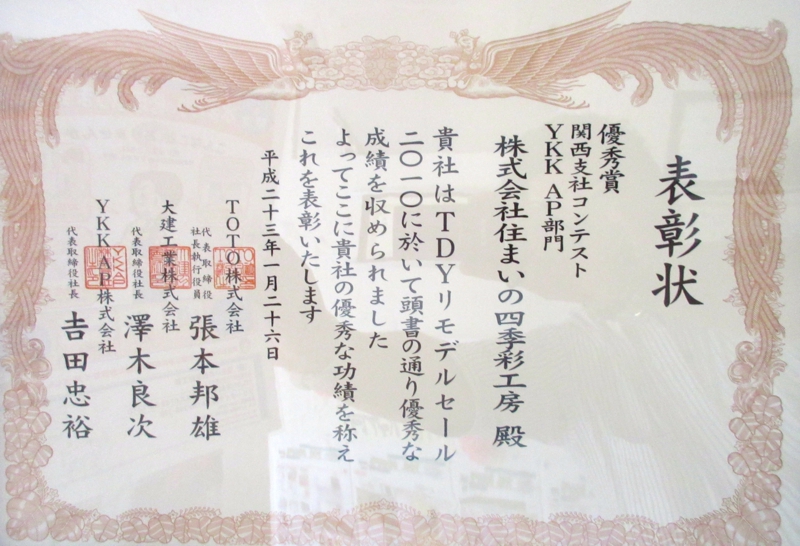 表彰状
優秀賞
関西支社コンテスト
YKK AP部門
株式会社住まいの四季彩工房 殿
貴社はTDYリモデルセール
二〇一〇に於いて頭書の通り優秀な
成績を収められました
よってここに貴社の優秀な功績を称え
これを表彰いたします
平成二十三年一月二十六日
TOTO株式会社
代表取締役
社長執行役員
張本邦雄
大建工業株式会社
代表取締役社長
澤木良次
YKK AP株式会社
代表取締役社長
𠮷田忠裕